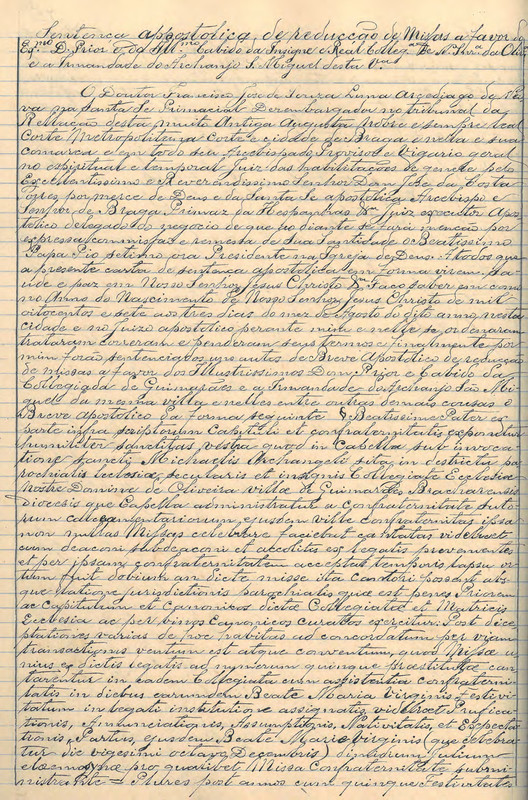 Sentença apostolica, de reducção de Missas a favor do
Exmo D. Prior e do Illmo Cabido da Insigne e Real Collega de N. Snra da Oliva
e a Irmandade do Archanjo S. Miguel desta Va
O Doutor Francisco José de Souza Lima Arcediago de
va na Santa Sé Primacial Dezembargador no tribunal da
Rellação desta muito Antiga Augusta Nobre e sempre leal
Corte Metropolitana Corte e cidade de Braga e nella e sua
comarca e em todo seu Arcebispado Provisor e Vigario geral
no espiritual e temporal Juiz das habilitações de genere pelo
Excellentissimo e Reverendissimo Senhor Dom José da Costa
Torres por merce de Deus e da Santa Sé apostolica Arcebispo e
Senhor de Braga Primaz das Hespanhas & Juiz executor Apos
tolico delegado do negocio de que ao diante se fará menção por
expressa commissão e remessa de Sua Santidade o Beatissimo
Papa Pio setimo ora Presidente na Igreja de Deus. A todos que
a presente carta de sentença apostolica em forma virem sa
ude e paz em Nosso Senhor Jesus Christo & Faço saber em como
no Anno do Nascimento de Nosso Senhor Jesus Christo de mil
oitocentos e sete aos tres dias do mez de Agosto do dito anno nesta
cidade e no juizo apostolico perante mim e nelle se ordenaram
trataram correram e penderam seus termos e finalmente por
mim forão sentenciados uns autos de Breve Apostolico de reducção
de missas a favor dos Illustrissimos Dom Prior e Cabido da
Collegiada de Guimarães e a Irmandade do Archanjo São Mi
guel da mesma villa e nelles entre outras demais cousas o
Breve apostolico da forma seguinte § Beatissime Pater ex
parte infra scriptorum Capituli et confraternitatis exponitur
humiliter sanctitati vestra quod in Capella sub invoca
tione sancti Michaelis Archangeli sita in districtu pa
rochialis Ecclesia secularis et insignis Collegiate Ecclesia
Nostre Domine de Oliveira ville de Guimarães Bracharensis
diocesis que Capella administratur a Confraternitate
rum ejusdem ville confraternitas ipsa
non nullas Missas celebrare faciebat cantatas videlicet
cum diaconi subdiaconi et accolitis ex legatis provenientes
et per ipsam confraternitatem acceptat temporis lapsu or
tum fuit dubium an dicte misse ita cantari possent abs
que latione jurisdictionis parochialis quæ est penes Priorem
ac Capitulum et Canonicos dictæ Collegiatæ et Matricis
Ecclesia ac per binos Canonicos curatos exercitur. Post disce
ptationes varias de hoc habitas ad concordatum per viam
transactionis ventum est atque conventum, quod Missæ u
nius ex dictis legatis ad numerum quinque præstitutæ can
tarentur in eadem Collegiata cum assistentia confraterni
tatis in diebus earumdem Beate Maria Virginis Festivi
tatum in legati institutione assignatis, videlicet Purifica
tionis, Annunciationis, Assumptionis, Nativitatis, et Expecta
tionis Partus, ejusdem Beate Mariæ Virginis (que celebra
tur die vigesimi octavo Decembris)
elemosynæ pro qualibet Missa Confraternitate submi
nistrante = Plures post annos cum quinque Festivitates